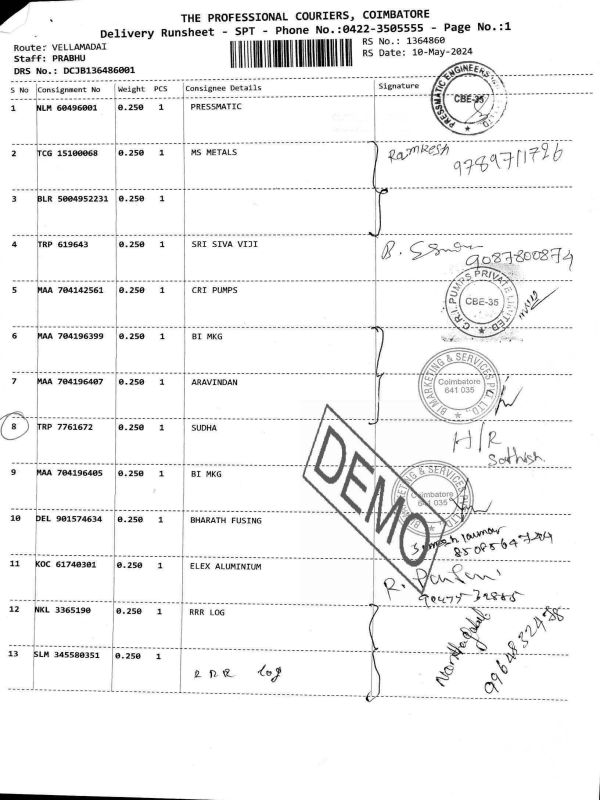 THE PROFESSIONAL COURIERS, COIMBATORE
Delivery Runsheet - SPT - Phone No.:0422-3505555 - Page No.:1
Route: VELLAMADAI RS No.: 1364860
Staff: PRABHU RS Date: 10-May-2024
DRS No.: DCJB136486001
S No Consignment No Weight PCS Consignee Details Signature
PRESSMATIC ENGINEERS
CBE-35
1 NLM 60496001 0.250 1 PRESSMATIC
2 TCG 15100068 0.250 1 MS METALS Ramkesh
9789711726
3 BLR 5004952231 0.250 1
4 TRP 619643 0.250 1 SRI SIVA VIJI B.
9087800874
5 MAA 704142561 0.250 1 CRI PUMPS
C.R.I. PUMPS PRIVATE LIMITED
CBE-35
6 MAA 704196399 0.250 1 BI MKG
7 MAA 704196407 0.250 1 ARAVINDAN
BI MARKETING & SERVICES PVT. LTD.
Coimbatore
641 035
8 TRP 7761672 0.250 1 SUDHA H/R
Sathish
9 MAA 704196405 0.250 1 BI MKG
MARKETING & SERVICES PVT LTD
Coimbatore
641 035
DEMO
10 DEL 901574634 0.250 1 BHARATH FUSING
11 KOC 61740301 0.250 1 ELEX ALUMINIUM R.
12 NKL 3365190 0.250 1 RRR LOG
9964832478
13 SLM 345580351 0.250 1
RRR log